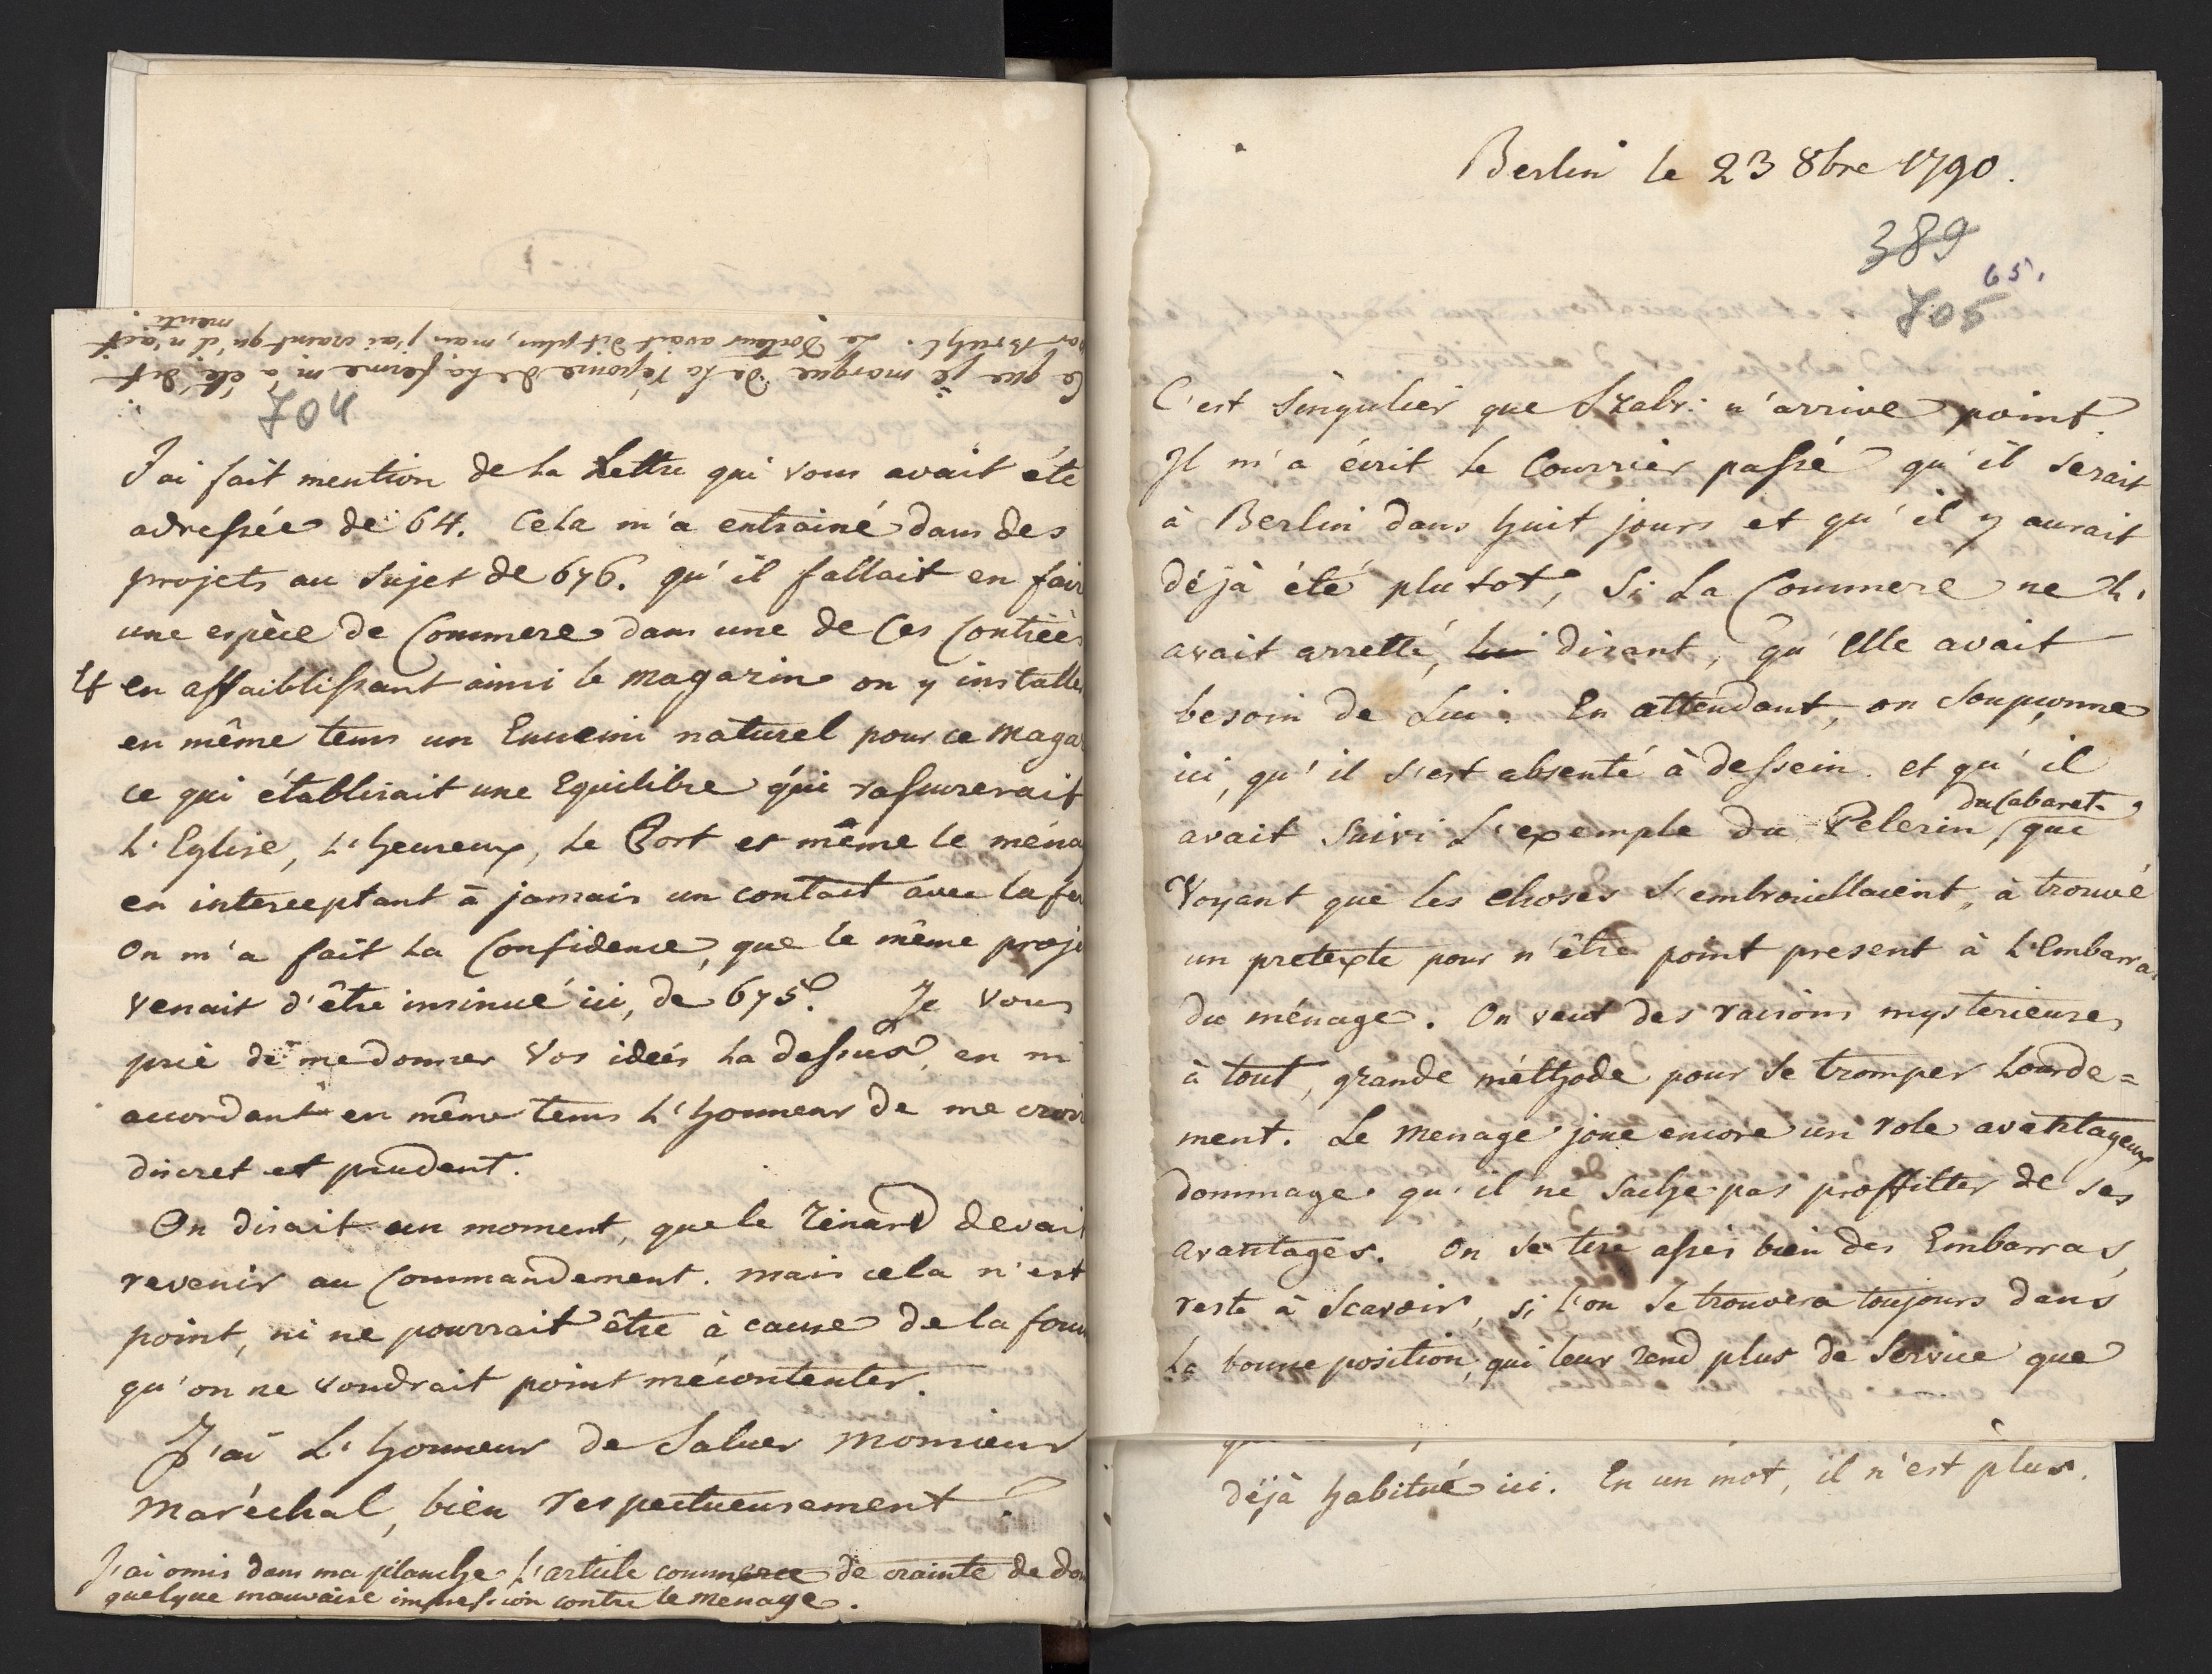 Ce que je marque de la réponse de la ferme m'a été dit
par Brühl. Le Docteur avait dit plus, mais j'ai craint qu'il n'ait
menti.
704
J'ai fait mention de la Lettre qui vous avait été
adressée de 64. Cela m'a entrainé dans des
projets au sujet de 676. qu'il fallait en fair
une espèce de Commere dans une de Ces Contrées
en affaiblissant ainsi le magazin on y installe
en même tems un Ennemi naturel pour ce maga
ce qui établirait une Equilibre qui rassurerait
l'Eglise, l'heureux, le Port et même le ména
en interceptant à jamais un contact avec la fe
On m'a fait la Confidence, que le même proje
venait d'être insinué ici, de 675. Je vous
prie de me donner vos idées la dessus, en m'
accordant en même tems l'honneur de me croi
discret et prudent.
On disait un moment, que le Renard devait
revenir au Commandement. mais cela n'est
point, ni ne pourrait être à cause de la four
qu'on ne voudrait point mécontenter.
J'ai l'honneur de Saluer Monsieur
Maréchal, bien respectueusement.
J'ai omis dans ma planche l'article commerce de crainte de do
quelque mauvaise impression contre le menage.
Berlin le 23 8bre 1790.
389
65.
705
C'est Singulier que Szabr: n'arrive point.
Il m'a écrit le Courrier passé qu'il serait
à Berlin dans huit jours et qu'il y aurait
déjà été plutot, Si la Commere ne l'
avait arretté, lui disant, qu'Elle avait
besoin de Lui. En attendant, on soupçonne
ici, qu'il s'est absenté à dessein. et qu'il
avait Suivi l'exemple du Pelerin du Cabaret, que
Voyant que les choses s'embrouillaient, à trouvé
un pretexte pour n'être point present à l'Embarra
du ménage. On veut des raisons mysterieuses
à tout, grande méthode pour se tromper lourde=
ment. Le Menage joue encore un role avantageux
dommage qu'il ne sache pas proffitter de ses
avantages. On se tire assés bien des Embarras,
reste à Scavoir, si l'on se trouvera toujours dans
la bonne position, qui leur rend plus de Service que
déjà habitué ici. En un mot, il n'est plus.